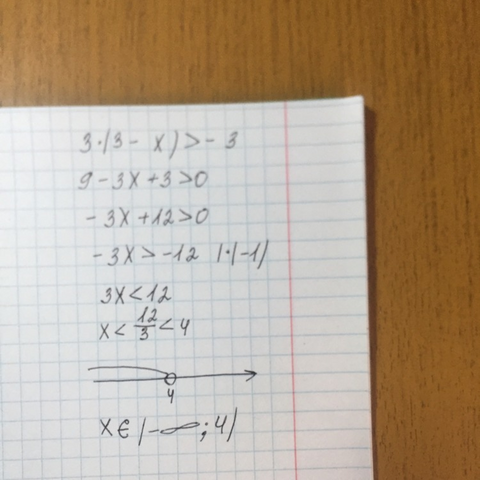 3·(3 - x) > - 3
9 - 3x + 3 > 0
- 3x + 12 > 0
- 3x > - 12 |·(-1)
3x < 12
x < 12/3 < 4
4
x ∈ (-∞; 4)